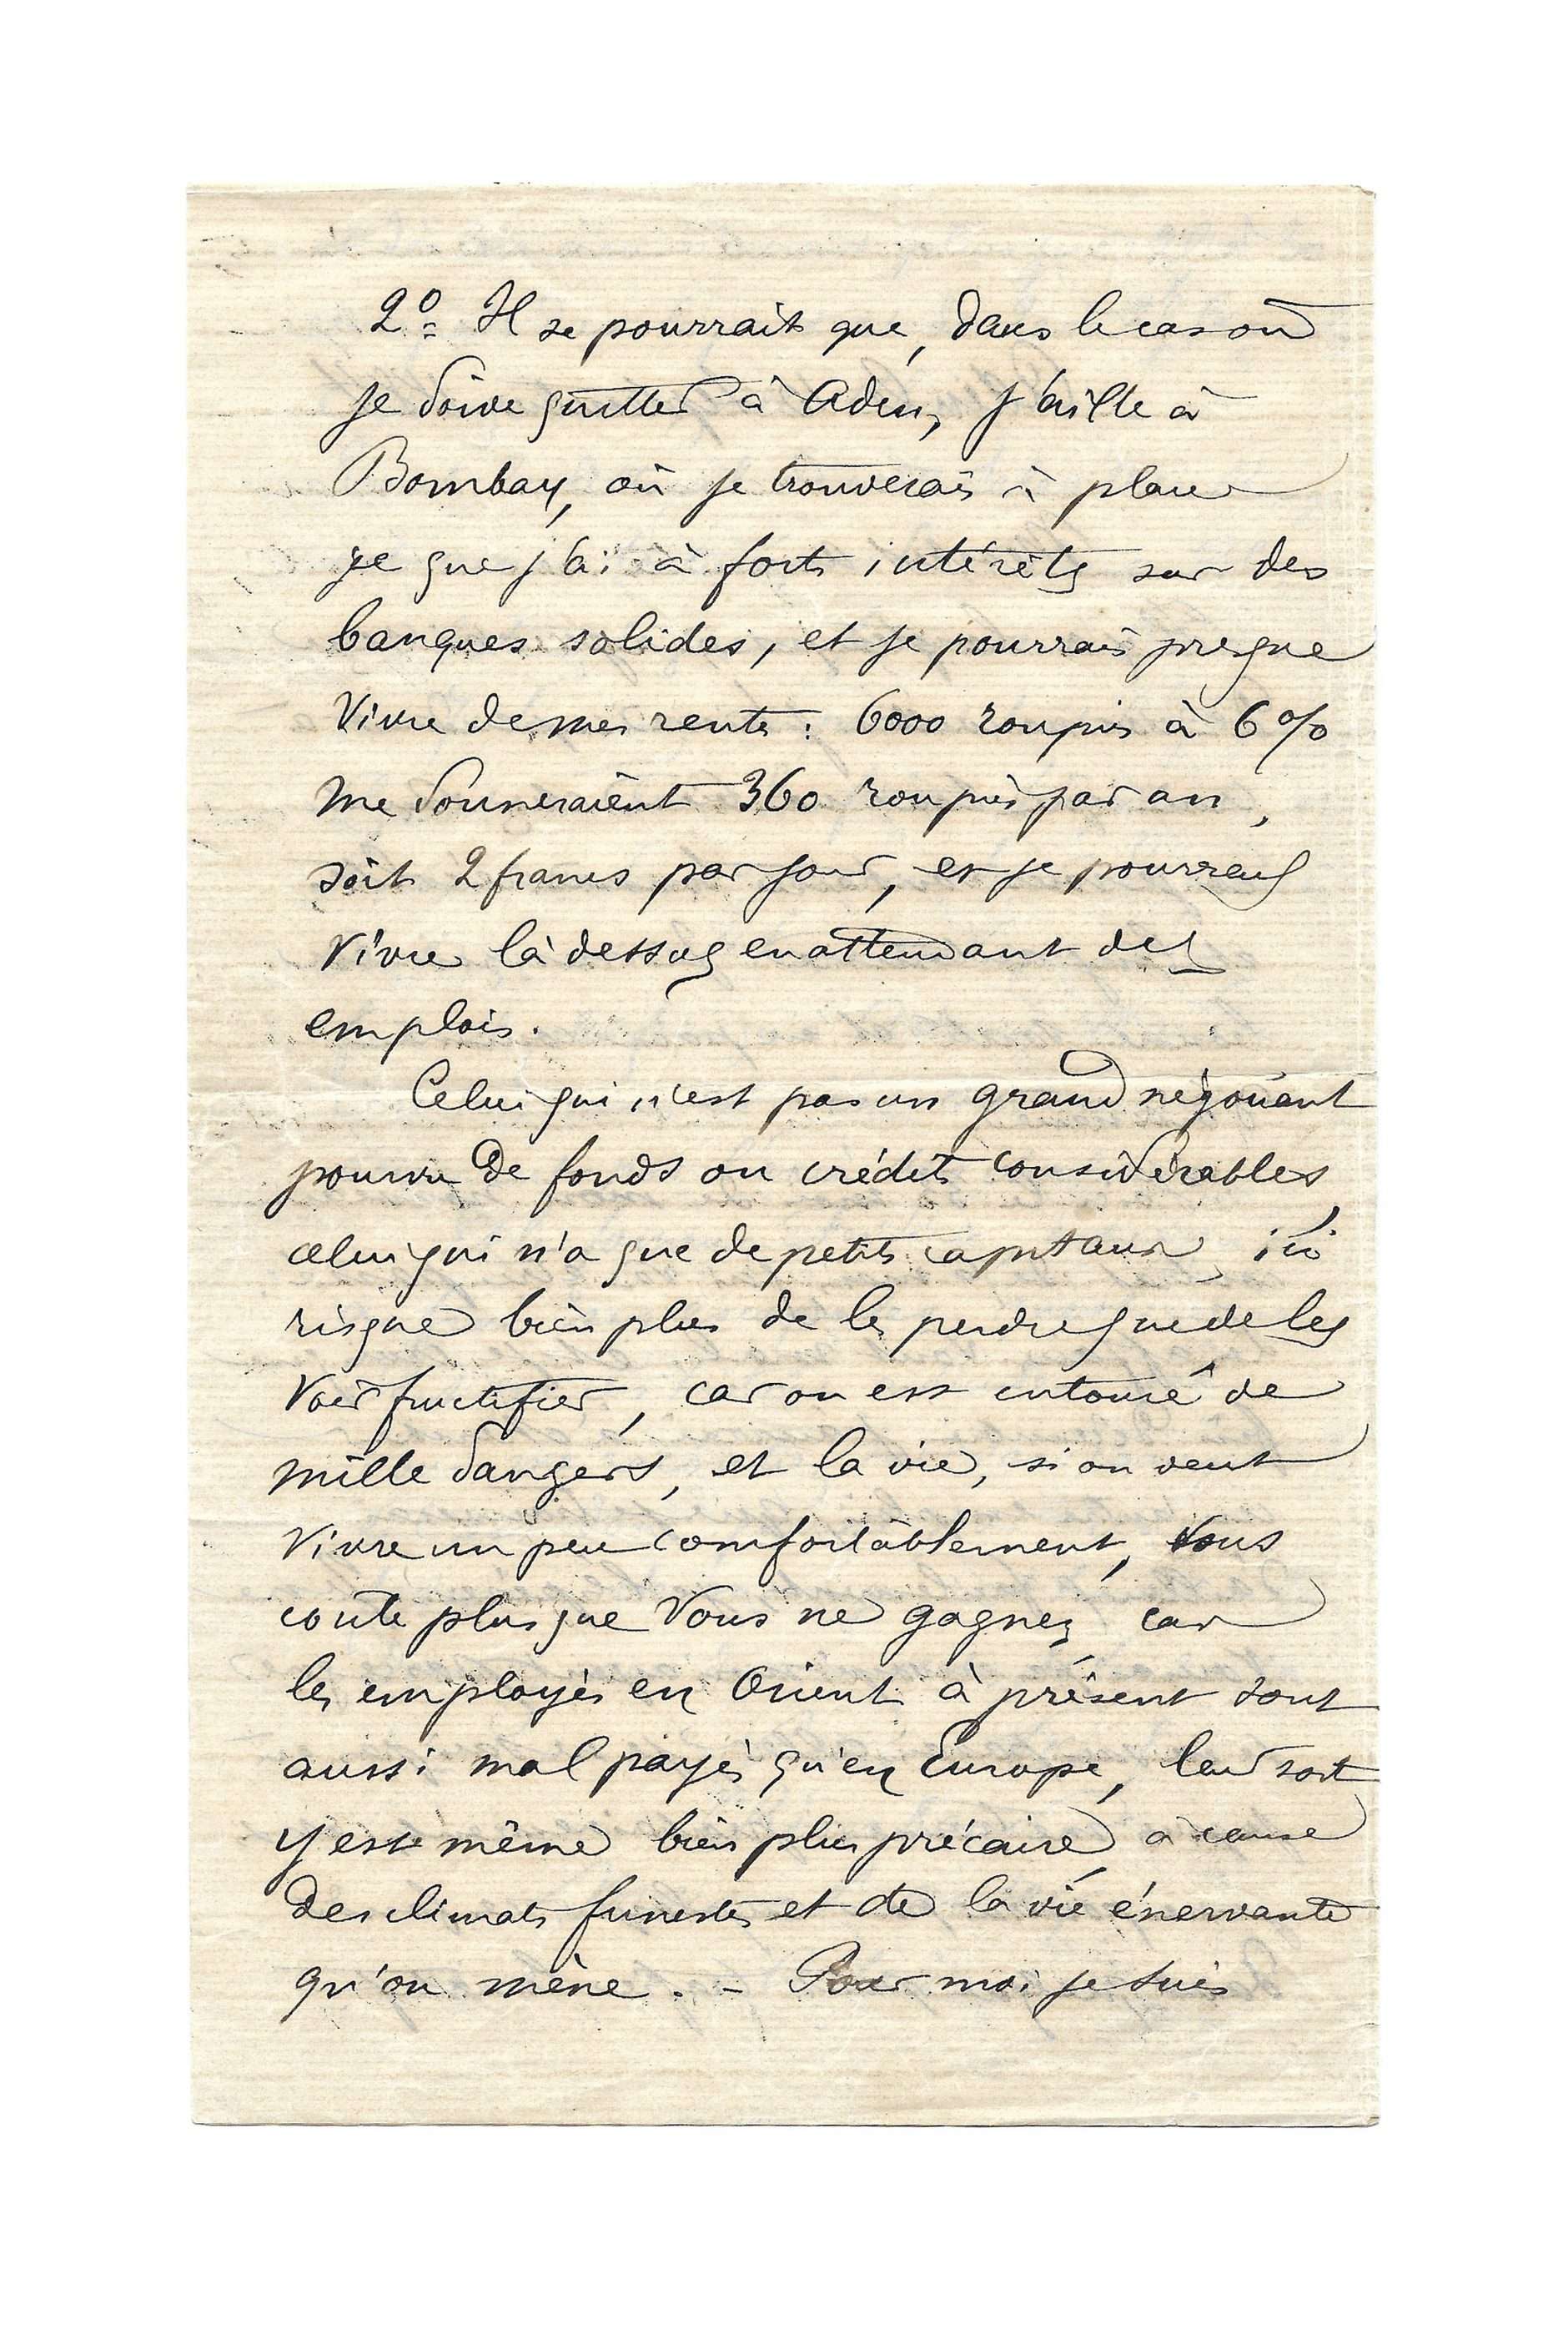 2º Il se pourrait que, dans le cas où
je doive quitter à Aden, j'aille à
Bombay, où je trouverais à placer
ce que j'ai à forts intérêts sur des
banques solides, et je pourrais presque
vivre de mes rentes : 6000 roupies à 6 %
me donneraient 360 roupies par an,
soit 2 francs par jour, et je pourrais
vivre là dessus en attendant des
emplois.
Celui qui n'est pas un grand négociant
pourvu de fonds ou crédits considérables,
celui qui n'a que de petits capitaux, ici
risque bien plus de les perdre que de les
voir fructifier, car on est entouré de
mille dangers, et la vie, si on veut
vivre un peu comfortablement, vous
coûte plus que vous ne gagnez, car
les employés en Orient à présent sont
aussi mal payés qu'en Europe, leur sort
y est même bien plus précaire, à cause
des climats funestes et de la vie énervante
qu'on mène. - Pour moi je suis